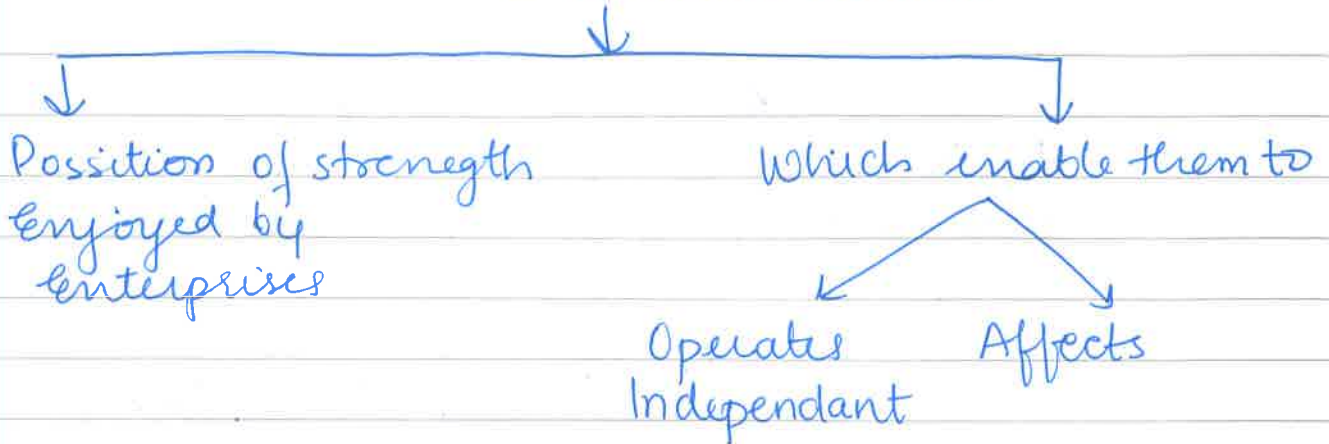 Possition of strenegth
Enjoyed by
Enterprises
Which enable them to
Operates
Independant
Affects